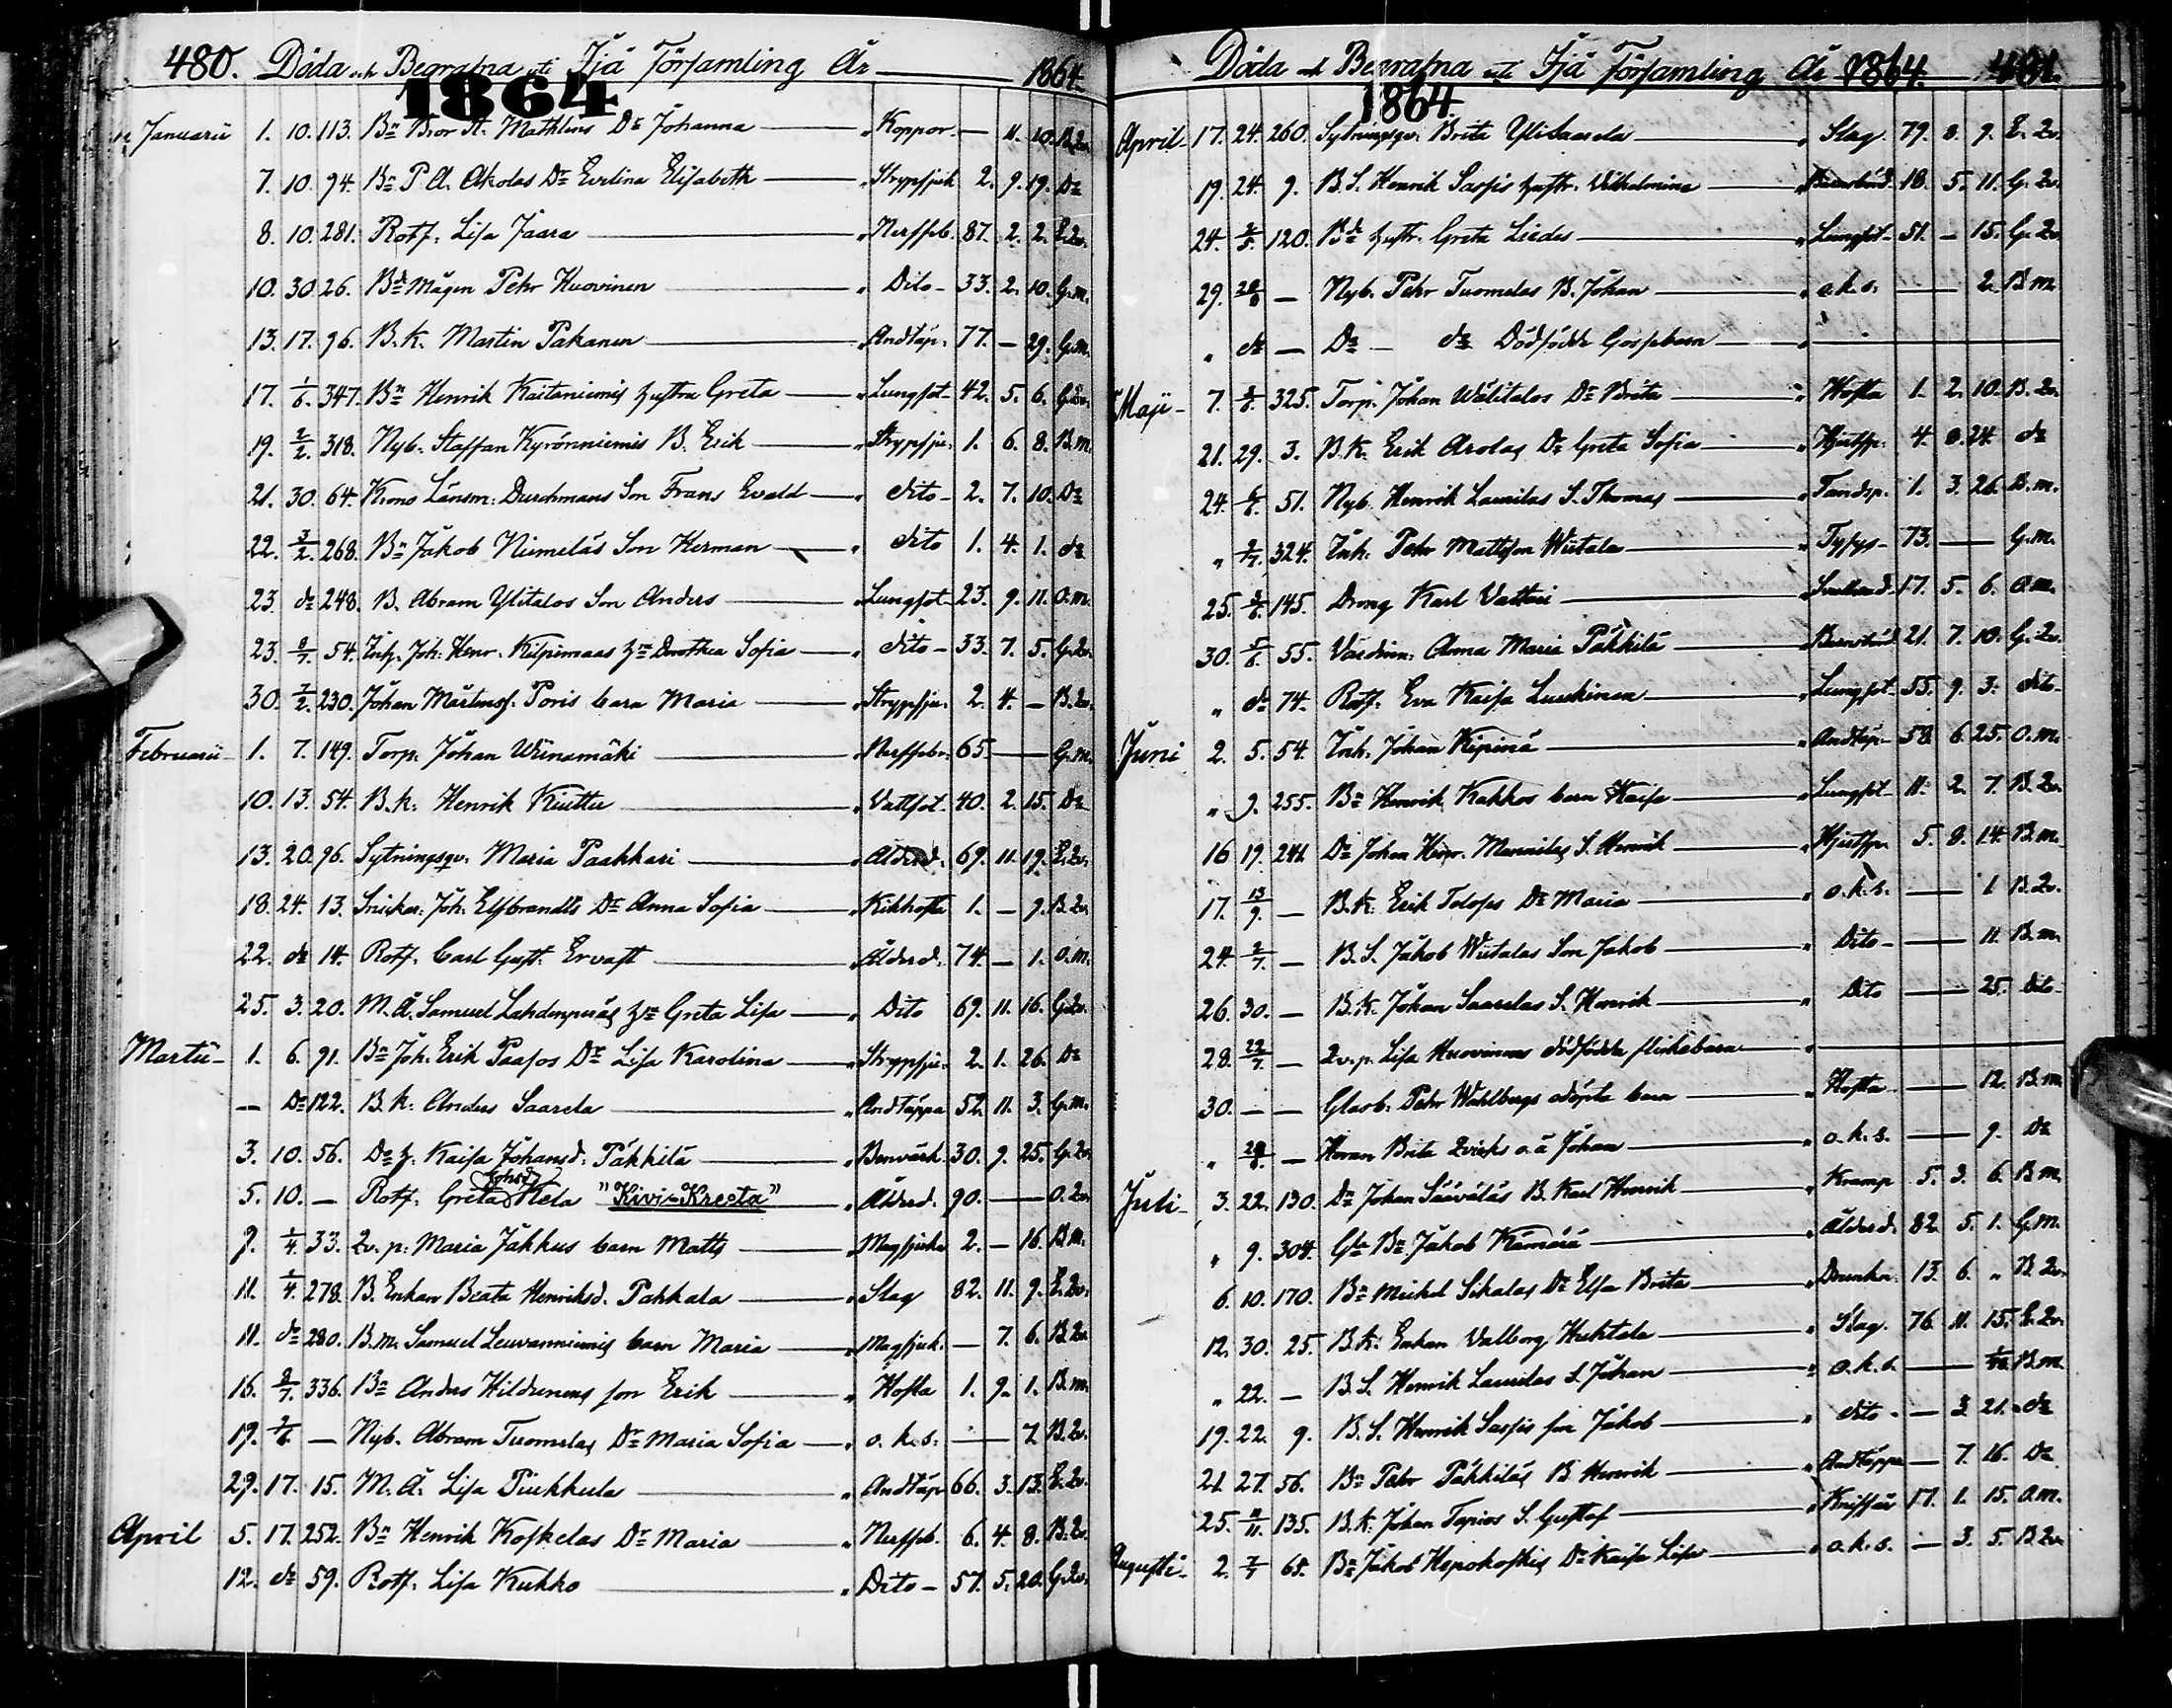 480. Döda och Begrafna uti Ijå Församling År 1864.
1864
Januarii 1. 10. 113. Bn Bror A. Mathlins Dr Johanna " Koppor. — 11. 10. B.Qv.
7. 10. 94. Bn P. A. Akolas Dr Evelina Elisabeth " Strypsjuk 2. 9. 19. Do
8. 10. 281. Rotf. Lisa Jaara " Nerffeb. 87. 2. 2. E.Qv.
10. 30. 26. Bde Mågen Pehr Kuovinen " Dito 33. 2. 10. G.m.
13. 17. 96. B.K. Martin Pakanen " Andtäp. 77. — 29. G.m.
17. 1/6. 347. Bn Henrik Kaitaniemis hustru Greta " Lungsot 42. 5. 6. G.Qv.
19. 2/2. 318. Nyb. Staffan Kyrönniemis B. Erik " Strypsju. 1. 6. 8. B.m.
21. 30. 64. Krono Länsm. Durchmans Son Frans Evald " dito 2. 7. 10. Do
22. 3/2. 268. Bn Jakob Niemeläs Son Herman " dito 1. 4. 1. do
23. do 248. B. Abram Ylitalos Son Anders " Lungsot 23. 9. 11. O.m.
23. 8/7. 54. Inh. Joh. Henr. Kilpimaas hu Dorothea Sofia " dito 33. 7. 5. G.Qv.
30. 7/2. 230. Johan Mårtens. Poris barn Maria " Strypsju. 2. 4. — B.Qv.
Februarii 1. 7. 149. Torp. Johan Wiinamäki " Nerffeb. 65. — G.m.
10. 13. 54. B.k. Henrik Kiuttu " Vattsot. 40. 2. 15. Do
13. 20. 96. Sytningsqv. Maria Paakkari " Ålderd. 69. 11. 19. E.Qv.
18. 24. 13. Snickar. Joh. Elfbrandts Dr Anna Sofia " Kikhosta 1. — 9. B.Qv.
22. do 14. Rotf. Carl Gust. Ervast " Ålderd. 74. — 1. O.m.
25. 3. 20. M.Å. Samuel Lahdenperäs hu Greta Lisa " Dito 69. 11. 16. G.Qv.
Martii 1. 6. 91. Bn Joh. Erik Paasos Dr Lisa Karolina " Strypsju. 2. 1. 26. Do
— Do 122. B.k. Anders Saarela " Andtäppa 52. 11. 3. G.m.
3. 10. 56. Do h. Kaisa Johansd. Päkkilä " Benvärk. 30. 9. 25. G.Qv.
5. 10. — Rotf. Greta Johsd Kela "Kivi-Kreeta" " Ålderd. 90. — O.Qv.
9. 1/4. 33. Qv.p. Maria Jakkus barn Matts " Magsjuka 2. — 16. B.m.
11. 1/4. 278. B. Enkan Beata Henriksd. Pahkala " Slag 82. 11. 9. E.Qv.
11. do 280. B.m. Samuel Leuvanniemis barn Maria " Magsjuk. — 7. 6. B.Qv.
16. 8/7. 336. Bn Anders Hildeenens son Erik " Hosta 1. 9. 1. B.m.
19. 2/6. — Nyb. Abram Tuomelas Dr Maria Sofia " o.k.s. — 7. B.Qv.
29. 17. 15. M.Å. Lisa Piukkula " Andtäp 66. 3. 13. E.Qv.
April 5. 17. 252. Bn Henrik Koskelas Dr Maria " Nerffeb. 6. 4. 8. B.Qv.
12. do 59. Rotf. Lisa Kukko " Dito 57. 5. 20. G.Qv.
Döda och Begrafna uti Ijå Församling År 1864. 481.
1864
April 17. 24. 260. Sytningsqv. Brita Ylisaarela " Slag. 79. 8. 9. E.Qv.
19. 24. 9. B.S. Henrik Sassis hustr. Wilhelmina " Barnsbörd. 18. 5. 11. G.Qv.
24. 2/5. 120. Bde hustr. Greta Liedes " Lungsot 51. — 15. G.Qv.
29. 28/8 — Nyb. Pehr Tuomelas B. Johan " o.k.s. — 2. B.m.
" do — Do — do Dödfödde Gossebarn "
Maji 7. 2/8. 325. Torp. Johan Wälitalos Dr Brita " Hosta 1. 2. 10. B.Qv.
21. 29. 3. B.K. Erik Arolas Dr Greta Sofia " Hjertsp. 4. 8. 24. do
24. 6/8. 51. Nyb. Henrik Laurilas S. Thomas " Tandsp. 1. 3. 26. B.m.
" 2/7. 324. Inh. Pehr Mattsson Wiitala " Tyfus 73. — G.m.
25. 2/6. 145. Dreng Karl Vattari 17. 5. 6. O.m.
30. 5/6. 55. Värdinn. Anna Maria Päkkilä " Barnsbörd 21. 7. 10. G.Qv.
" do 74. Rotf. Eva Kaisa Luukinen " Lungsot. 55. 9. 3. dito
Juni 2. 5. 54. Inh. Johan Kipinä " Andtäp. 58. 6. 25. O.m.
" 9. 255. Bn Henrik Kakkos barn Kaisa " Lungsot 11. 2. 7. B.Qv.
16 19. 241. Do Johan Henr. Mannilas S. Henrik " Hjertsp. 5. 8. 14. B.m.
17. 13/9. — B.K. Erik Tolops Dr Maria " o.k.s. — 1 B.Qv.
24. 2/7. — B.S. Jakob Wiitalas Son Jakob " Dito — 11. B.m.
26. 30. — B.K. Johan Saarelas S. Henrik " Dito — 25. Dito
28. 22/7. — Qv.p. Lisa Huovinens dödfödda flickebarn "
30. — — Glasb. Pehr Wahlbergs odöpta barn " Hosta — 12. B.m.
" 28/8. — Horan Brita Zvicks o.ä. Johan " o.k.s. — 9. Do
Juli 3. 22. 130. Do Johan Sääväläs B. Karl Henrik " Kramp 5. 3. 6. B.m.
" 9. 304. Gla Bn Jakob Kämärä " Ålderd. 82. 5. 1. G.m.
6. 10. 170. Bn Mickel Sikalas Dr Elsa Brita " Drunkn. 13. 6. " B.Qv.
12. 30. 25. B.K. Enkan Valborg Huhtela " Slag. 76. 11. 15. E.Qv.
" 22. — B.S. Henrik Laurilas S. Johan " o.k.s. — B.m.
19. 22. 9. B.S. Henrik Sassis son Jakob " dito — 3 21. do
21 27. 56. Bn Pehr Päkkiläs B. Henrik " Andtäppa — 7. 16. Do
25. 135. B.K. Johan Tapios S. Gustaf 17. 1. 15. O.m.
Augusti 2. 7/7 65. Bn Jakob Hepokoskis Dr Kaisa Lisa " o.k.s. — 3. 5. B.Qv.